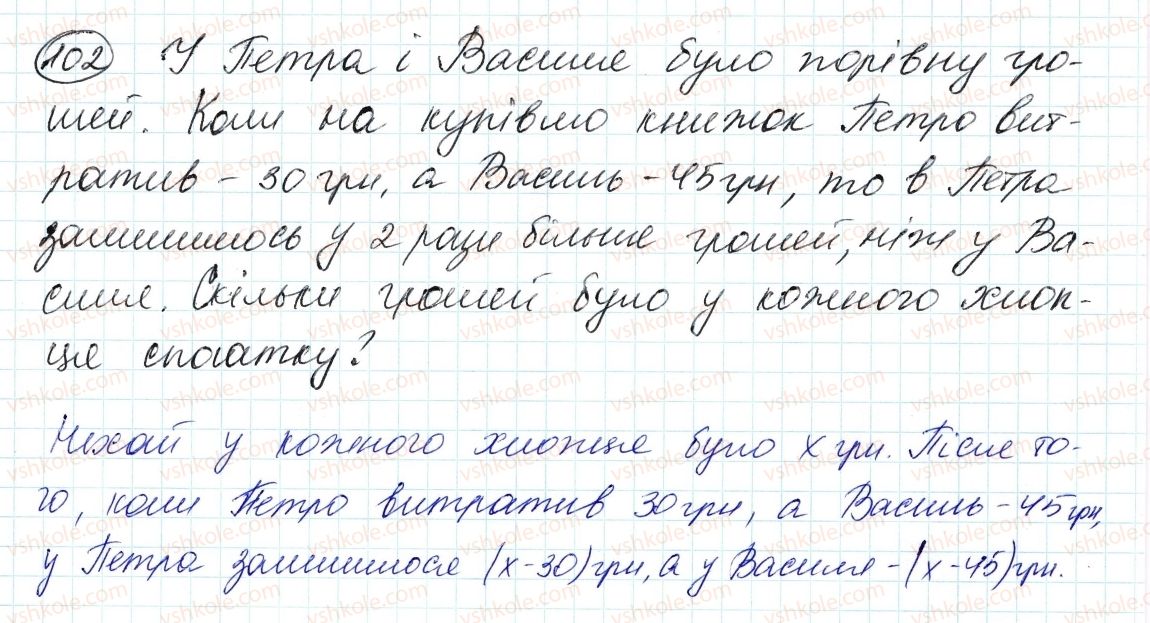 102 У Петра і Василя було порівну гро-
шей. Коли на купівлю книжок Петро вит-
ратив - 30 грн, а Василь - 45 грн, то в Петра
залишилось у 2 рази більше грошей, ніж у Ва-
силя. Скільки грошей було у кожного хлоп-
ця спочатку?
Нехай у кожного хлопця було x грн. Після то-
го, коли Петро витратив 30 грн, а Василь - 45 грн,
у Петра залишилося (x-30) грн, а у Василя - (x-45) грн.